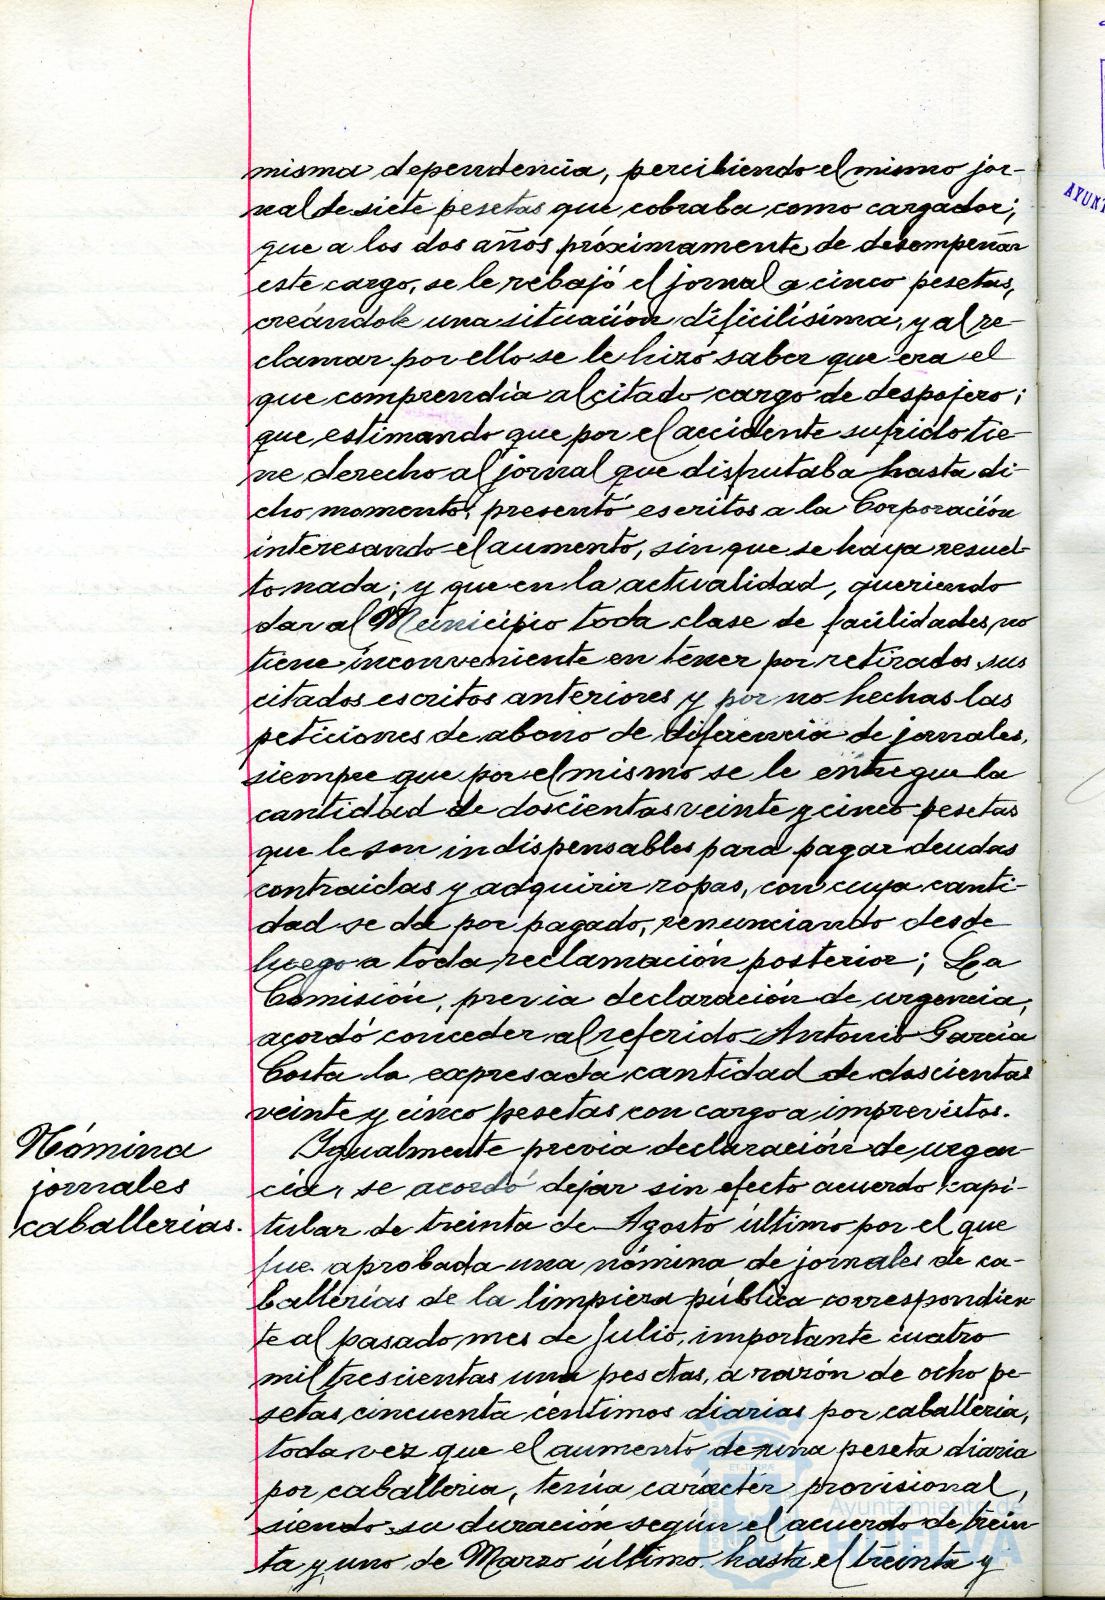 misma dependencia, percibiendo el mismo jor-
nal de siete pesetas que cobraba como cargador;
que a los dos años próximamente de desempeñar
este cargo, se le rebajó el jornal a cinco pesetas,
creándole una situación dificilísima, y al re-
clamar por ello se le hizo saber que era el
que comprendía al citado cargo de despojero;
que estimando que por el accidente sufrido tie-
ne derecho al jornal que disfrutaba hasta di-
cho momento, presentó escritos a la Corporación
interesando el aumento, sin que se haya resuel-
to nada; y que en la actualidad, queriendo
dar al Municipio toda clase de facilidades, no
tiene inconveniente en tener por retirados sus
citados escritos anteriores y por no hechas las
peticiones de abono de diferencia de jornales,
siempre que por el mismo se le entregue la
cantidad de doscientas veinte y cinco pesetas
que le son indispensables para pagar deudas
contraidas y adquirir ropas, con cuya canti-
dad se da por pagado, renunciando desde
luego a toda reclamación posterior; La
Comisión, previa declaración de urgencia,
acordó conceder al referido Antonio García
Costa la expresada cantidad de doscientas
veinte y cinco pesetas con cargo a imprevistos.
Nómina
jornales
caballerías.
Igualmente previa declaración de urgen-
cia, se acordó dejar sin efecto acuerdo capi-
tular de treinta de Agosto último por el que
fue aprobada una nómina de jornales de ca-
ballerías de la limpieza pública correspondien-
te al pasado mes de Julio, importante cuatro
mil trescientas una pesetas, a razón de ocho pe-
setas cincuenta céntimos diarias por caballería,
toda vez que el aumento de una peseta diaria
por caballería, tenía carácter provisional,
siendo su duración según el acuerdo de trein-
ta y uno de Marzo último hasta el treinta y
Ayuntamiento de
HUELVA
AYUNT